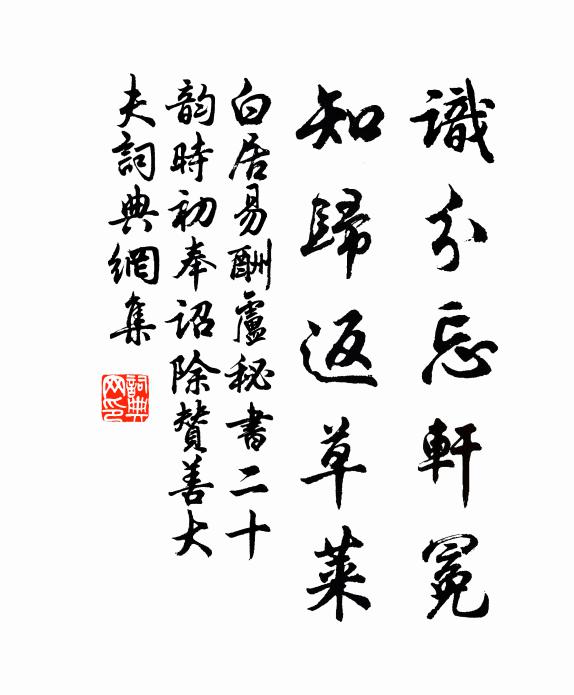 識分忘軒冕
知歸返草萊
白居易酬盧秘書二十
韵時初奉詔除贊善大
夫詞典網集
詞典
网印